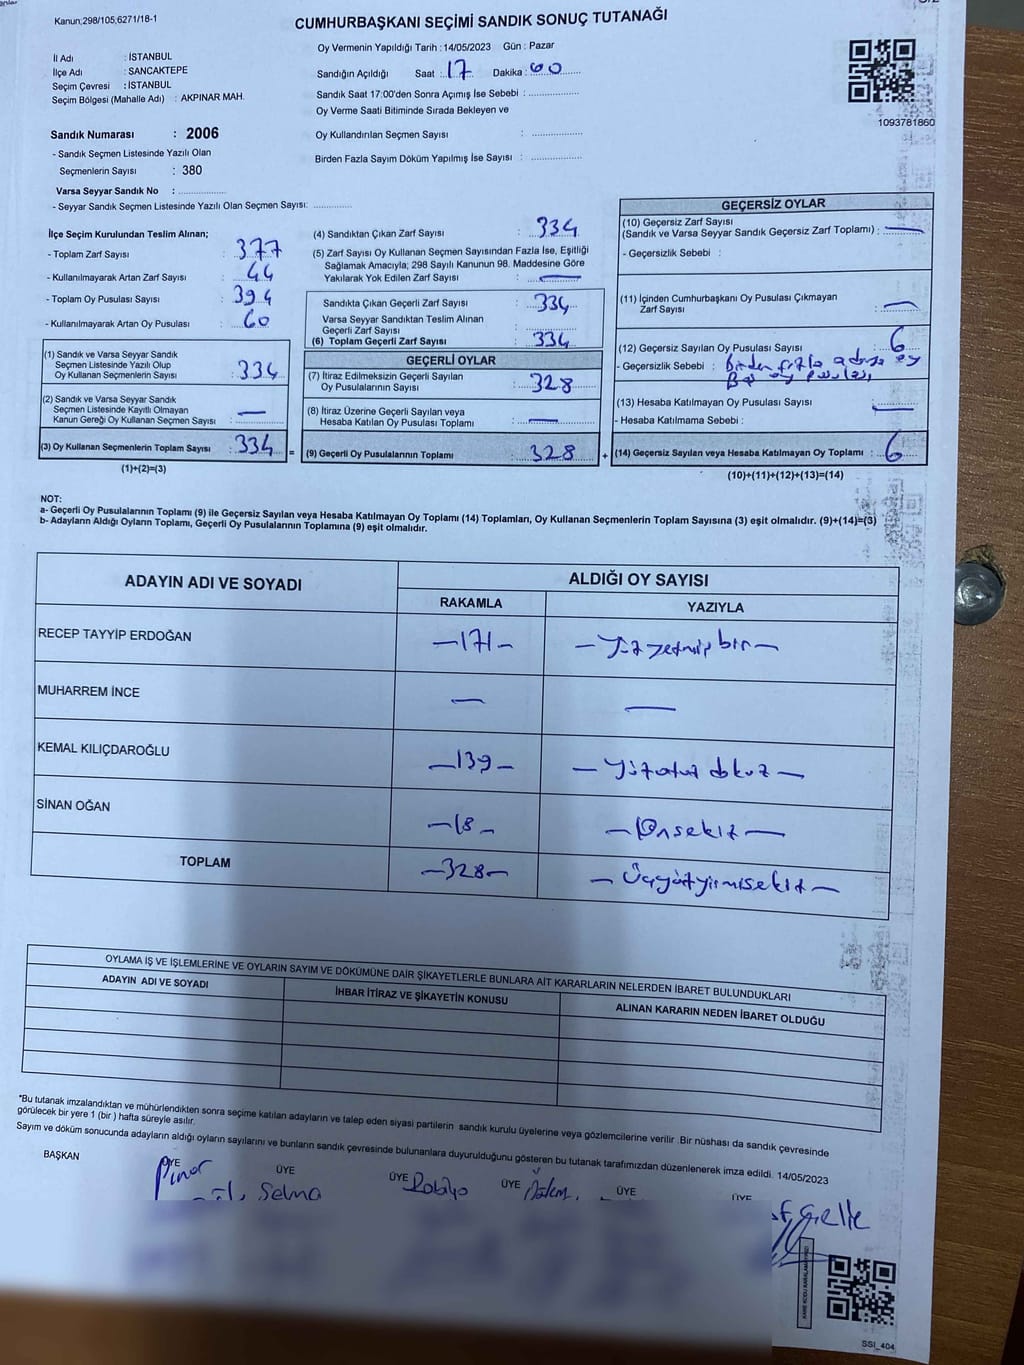 Kanun;298/105;6271/18-1
CUMHURBAŞKANI SEÇİMİ SANDIK SONUÇ TUTANAĞI
İl Adı : İSTANBUL
İlçe Adı : SANCAKTEPE
Seçim Çevresi : İSTANBUL
Seçim Bölgesi (Mahalle Adı) : AKPINAR MAH.
Sandık Numarası : 2006
- Sandık Seçmen Listesinde Yazılı Olan
Seçmenlerin Sayısı : 380
Varsa Seyyar Sandık No : ....................
- Seyyar Sandık Seçmen Listesinde Yazılı Olan Seçmen Sayısı: ...............
Oy Vermenin Yapıldığı Tarih : 14/05/2023 Gün : Pazar
Sandığın Açıldığı Saat : 17 Dakika : 00
Sandık Saat 17:00'den Sonra Açımış İse Sebebi : ....................
Oy Verme Saati Bitiminde Sırada Bekleyen ve
Oy Kullandırılan Seçmen Sayısı : ....................
Birden Fazla Sayım Döküm Yapılmış İse Sayısı : ....................
1093781860
İlçe Seçim Kurulundan Teslim Alınan;
- Toplam Zarf Sayısı : 377
- Kullanılmayarak Artan Zarf Sayısı : 44
- Toplam Oy Pusulası Sayısı : 394
- Kullanılmayarak Artan Oy Pusulası : 60
(1) Sandık ve Varsa Seyyar Sandık
Seçmen Listesinde Yazılı Olup
Oy Kullanan Seçmenlerin Sayısı : 334
(2) Sandık ve Varsa Seyyar Sandık
Seçmen Listesinde Kayıtlı Olmayan
Kanun Gereği Oy Kullanan Seçmen Sayısı : —
(3) Oy Kullanan Seçmenlerin Toplam Sayısı : 334 =
(1)+(2)=(3)
(4) Sandıktan Çıkan Zarf Sayısı : 334
(5) Zarf Sayısı Oy Kullanan Seçmen Sayısından Fazla İse, Eşitliği
Sağlamak Amacıyla; 298 Sayılı Kanunun 98. Maddesine Göre
Yakılarak Yok Edilen Zarf Sayısı : —
Sandıkta Çıkan Geçerli Zarf Sayısı : 334
Varsa Seyyar Sandıktan Teslim Alınan
Geçerli Zarf Sayısı : ....................
(6) Toplam Geçerli Zarf Sayısı : 334
GEÇERLİ OYLAR
(7) İtiraz Edilmeksizin Geçerli Sayılan
Oy Pusulalarının Sayısı : 328
(8) İtiraz Üzerine Geçerli Sayılan veya
Hesaba Katılan Oy Pusulası Toplamı : —
(9) Geçerli Oy Pusulalarının Toplamı : 328 +
GEÇERSİZ OYLAR
(10) Geçersiz Zarf Sayısı
(Sandık ve Varsa Seyyar Sandık Geçersiz Zarf Toplamı) : —
- Geçersizlik Sebebi :
(11) İçinden Cumhurbaşkanı Oy Pusulası Çıkmayan
Zarf Sayısı : —
(12) Geçersiz Sayılan Oy Pusulası Sayısı : 6
- Geçersizlik Sebebi : birden fazla adaya oy
Boş oy pusulası
(13) Hesaba Katılmayan Oy Pusulası Sayısı : —
- Hesaba Katılmama Sebebi :
(14) Geçersiz Sayılan veya Hesaba Katılmayan Oy Toplamı : 6
(10)+(11)+(12)+(13)=(14)
NOT:
a- Geçerli Oy Pusulalarının Toplamı (9) ile Geçersiz Sayılan veya Hesaba Katılmayan Oy Toplamı (14) Toplamları, Oy Kullanan Seçmenlerin Toplam Sayısına (3) eşit olmalıdır. (9)+(14)=(3)
b- Adayların Aldığı Oyların Toplamı, Geçerli Oy Pusulalarının Toplamına (9) eşit olmalıdır.
ADAYIN ADI VE SOYADI ALDIĞI OY SAYISI
RAKAMLA YAZIYLA
RECEP TAYYİP ERDOĞAN —171— —Yüz yetmiş bir—
MUHARREM İNCE — —
KEMAL KILIÇDAROĞLU —139— —Yüzotuz dokuz—
SİNAN OĞAN —18— —Onsekiz—
TOPLAM —328— —Üçyüzyirmisekiz—
OYLAMA İŞ VE İŞLEMLERİNE VE OYLARIN SAYIM VE DÖKÜMÜNE DAİR ŞİKAYETLERLE BUNLARA AİT KARARLARIN NELERDEN İBARET BULUNDUKLARI
ADAYIN ADI VE SOYADI İHBAR İTİRAZ VE ŞİKAYETİN KONUSU ALINAN KARARIN NEDEN İBARET OLDUĞU
*Bu tutanak imzalandıktan ve mühürlendikten sonra seçime katılan adayların ve talep eden siyasi partilerin sandık kurulu üyelerine veya gözlemcilerine verilir .Bir nüshası da sandık çevresinde
görülecek bir yere 1 (bir ) hafta süreyle asılır.
Sayım ve döküm sonucunda adayların aldığı oyların sayılarını ve bunların sandık çevresinde bulunanlara duyurulduğunu gösteren bu tutanak tarafımızdan düzenlenerek imza edildi. 14/05/2023
BAŞKAN ÜYE ÜYE ÜYE ÜYE ÜYE ÜYE
Pınar Selma Rabiya Özlem
SSI_404